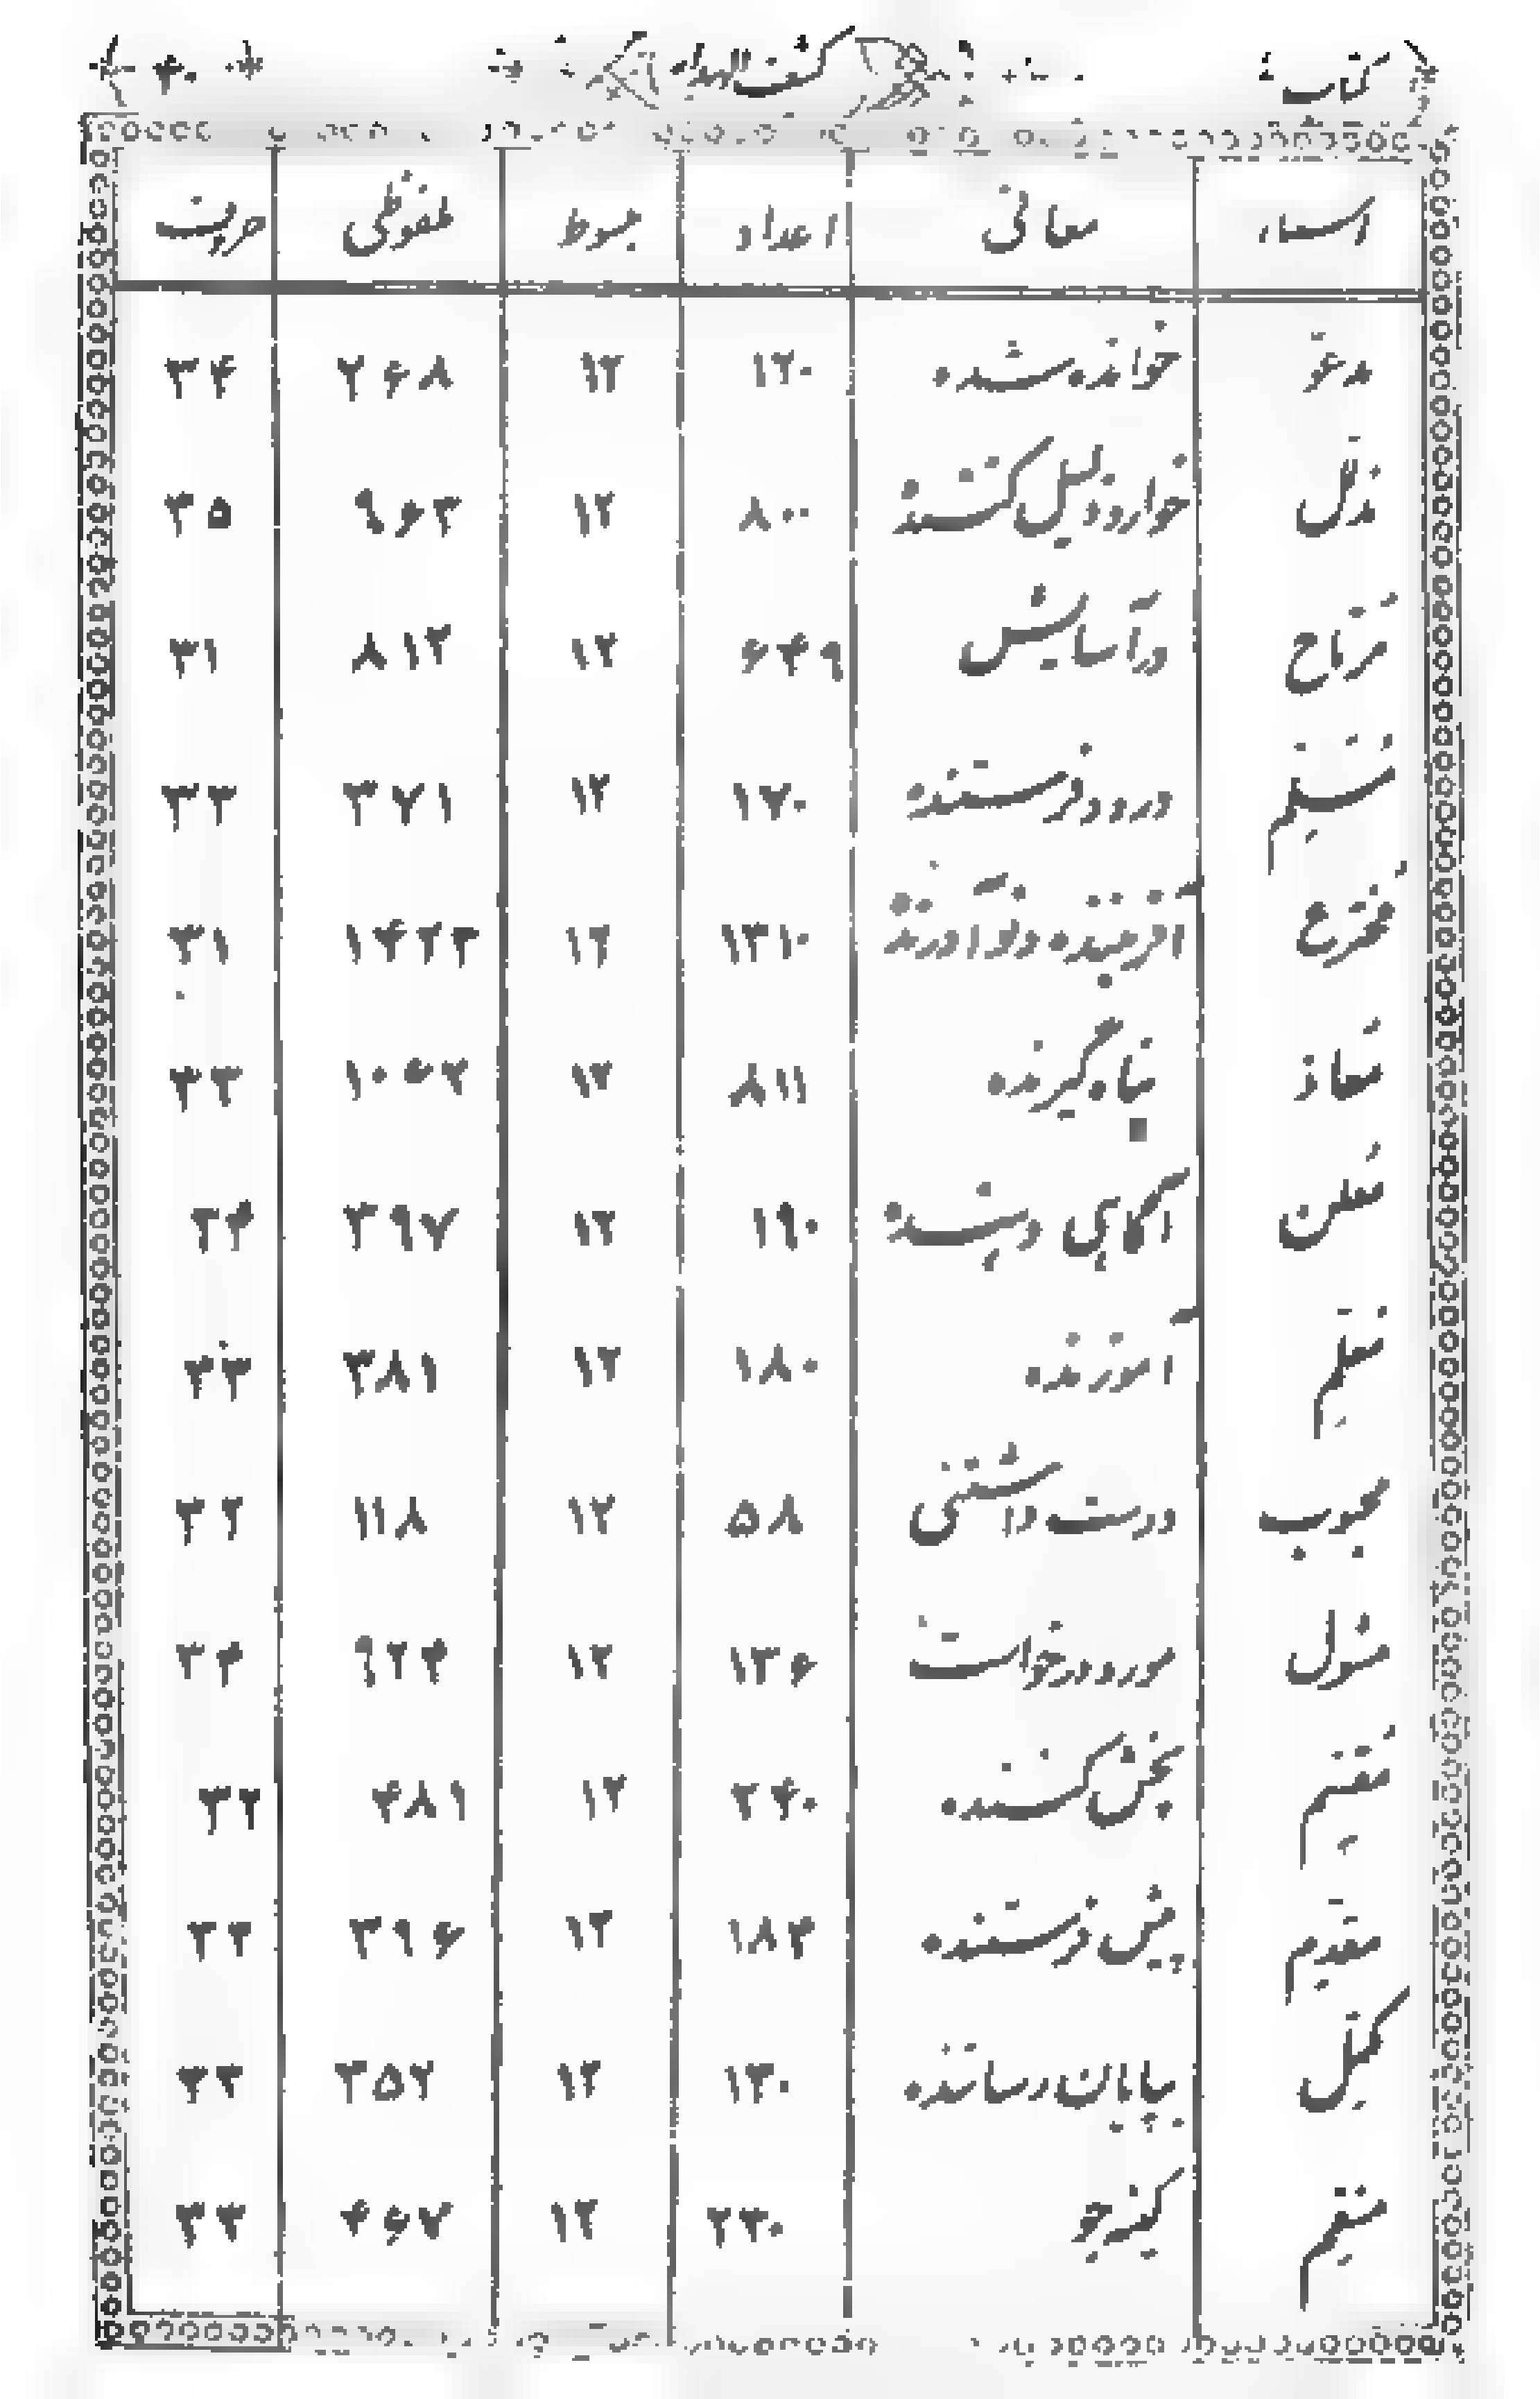 کتاب کشف الهدایه ۴۰
اسماء معانی اعداد مبسوط ملفوظی حروف
مدعوّ خوانده شده ۱۲۰ ۱۲ ۲۶۸ ۳۴
مذلّ خوار و ذلیل کننده ۸۰۰ ۱۲ ۹۶۳ ۳۵
مُرتاح در آسایش ۶۴۹ ۱۲ ۸۱۲ ۳۱
مُسَلِّم درود فرستنده ۱۷۰ ۱۲ ۳۷۱ ۳۳
مُخترع آفریننده و نو آورنده ۱۳۱۰ ۱۲ ۱۴۲۳ ۳۱
مَعاذ پناه گیرنده ۸۱۱ ۱۲ ۳۳
مُعلن آگاهی دهنده ۱۹۰ ۱۲ ۳۹۷ ۳۴
مُعلِّم آموزنده ۱۸۰ ۱۲ ۳۸۱ ۳۳
محبوب دوست داشتنی ۵۸ ۱۲ ۱۱۸ ۳۲
مسئول مورد درخواست ۱۳۶ ۱۲ ۹۲۴ ۳۴
مُقسِم بخش کننده ۲۴۰ ۱۲ ۴۸۱ ۳۲
مقدِّم پیش فرستنده ۱۸۴ ۱۲ ۳۹۶ ۳۲
مکمّل بپایان رساننده ۱۳۰ ۱۲ ۳۵۲ ۳۳
منتقم کینه جو ۶۳۰ ۱۲ ۴۶۷ ۳۳